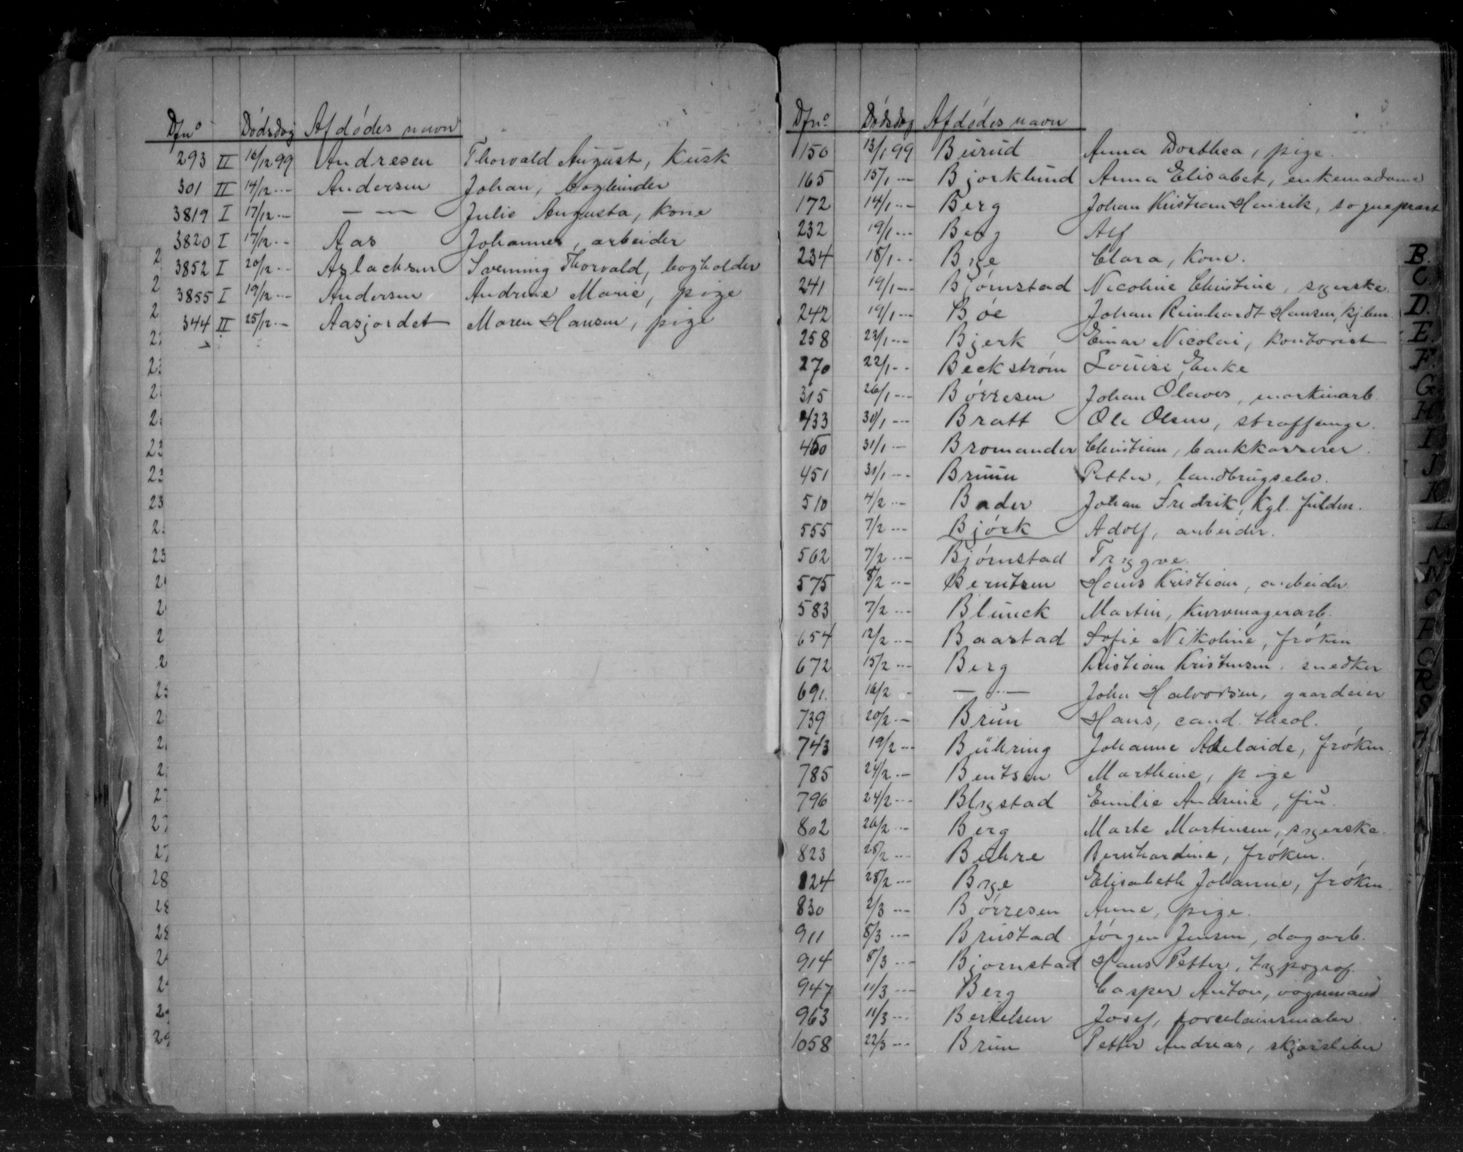 Dfn° Dødsdag Afdødes navn
293 II 16/12 99 Andresen Thorvald August, Kusk
301 II 14/12 -- Andersen Johan, bogbinder
3819 I 17/12 -- — — Julie Augusta, kone
3820 I 17/12 -- Aas Johannes, arbeider
3852 I 20/12 -- Aslachsen Svenning Thorvald, bogholder
3855 I 19/12 -- Andersen Andrine Marie, pige
344 II 25/12 -- Aasjordet Maren Hansen, pige
Dfn° Dødsdag Afdødes navn
150 13/1 99 Burud Anna Dorthea, pige
165 15/1 -- Bjorklund Anna Elisabet, enkemadame
172 14/1 -- Berg Johan Kristian Henrik, sogneprest
232 19/1 -- Berg Alf
234 18/1 -- Bye Clara, kone.
241 19/1 -- Bjørnstad Nicoline Christine, syerske
242 19/1 -- Bøe Johan Reinhardt Hansen, kjbm.
258 23/1 -- Bjerk Einar Nicolai, kontorist
270 22/1 -- Beckstrøm Louise, Enke
315 26/1 -- Børresen Johan Olaves, maskinarb.
433 30/1 -- Bratt Ole Olsen, straffange.
450 31/1 -- Bromander Christian, bankkasserer.
451 31/1 -- Bruun Petter, landbrugselev.
510 4/2 -- Bader Johan Fredrik, Kgl. fuldm.
555 7/2 -- Björk Adolf, arbeider.
562 7/2 -- Bjørnstad Trygve.
575 8/2 -- Berntsen Hans Kristian, arbeider
583 7/2 -- Blunck Martin, kurvmagerarb.
654 12/2 -- Baastad Sofie Nikoline, frøken
672 15/2 -- Berg Kristian Kristensen, snedker
691. 16/2 - — — John Halvorsen, gaardeier
739 20/2 -- Brun Hans, cand. theol.
743 19/2 -- Bühring Johanne Adelaide, frøken.
785 24/2 -- Bentsen Marthine, pige
796 24/2 -- Blystad Emilie Andrine, fru.
802 26/2 -- Berg Marte Martinsen, syerske.
823 28/2 -- Buhre Bernhardine, frøken.
824 25/2 -- Bye Elisabeth Johanne, frøken
830 2/3 -- Børresen Anne, pige.
911 8/3 -- Brustad Jørgen Jensen, dagarb.
914 8/3 -- Bjornstad Hans Petter, typograf.
947 11/3 -- Berg Casper Anton, vognmand
963 11/3 -- Bertelsen Josef, porcelainsmaler
1058 22/3 -- Brun Petter Andreas,
B.
C.
D.
E.
F.
G.
H.
I
J
K
L